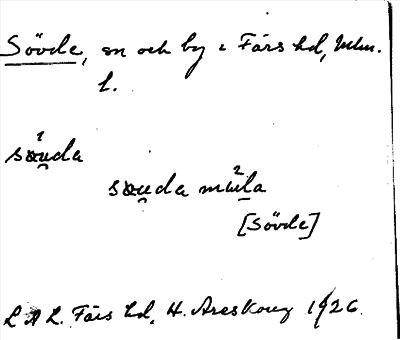 Sövde, sn och by i Färs hd, Mlm.
l.
sœ́u̯da
sœu̯da
[Sövde]
L A L. Färs hd. H. Areskoug 1926.